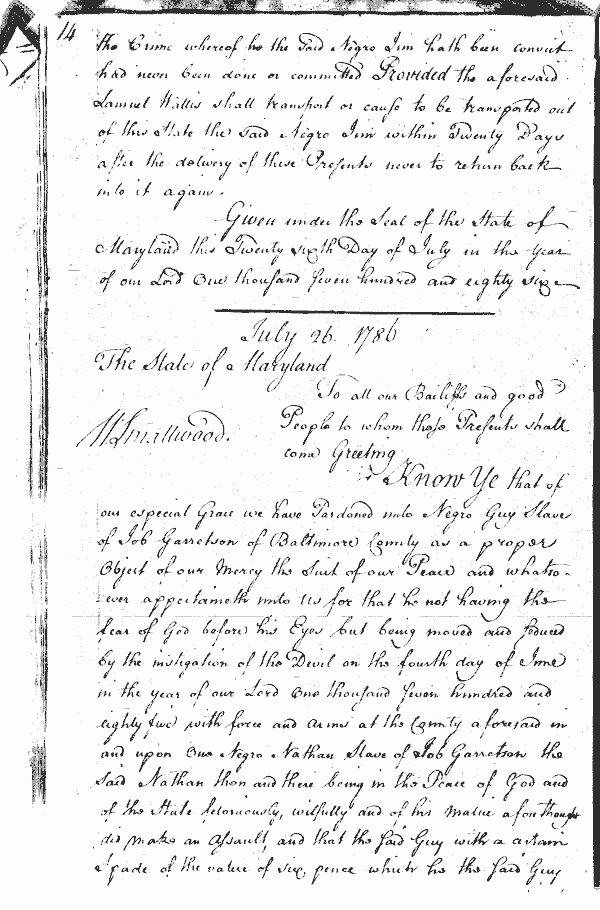 14
the Crime whereof he the said Negro Jim hath been convict
had never been done or committed Provided the aforesaid
Samuel Willis shall transport or cause to be transported out
of this State the said Negro Jim within Twenty Days
after the delivery of these Presents never to return back
into it again.
Given under the Seal of the State of
Maryland this Twenty sixth Day of July in the Year
of our Lord One thousand Seven hundred and eighty six
July 26. 1786
The State of Maryland
To all our Bailiffs and good
W Smallwood.
People to whom these Presents shall
come Greeting
Know Ye that of
our especial Grace we have Pardoned unto Negro Guy Slave
of Job Garretson of Baltimore County as a proper
Object of our Mercy the Suit of our Peace and whatso-
-ever appertaineth unto Us for that he not having the
fear of God before his Eyes but being moved and seduced
by the instigation of the Devil on the fourth day of June
in the year of our Lord One thousand Seven hundred and
eighty five with force and arms at the County aforesaid in
and upon One Negro Nathan Slave of Job Garretson the
said Nathan then and there being in the Peace of God and
of the State feloniously, wilfully and of his malice afore thought
did make an Assault, and that the said Guy with a certain
Spade of the value of six pence which he the said Guy